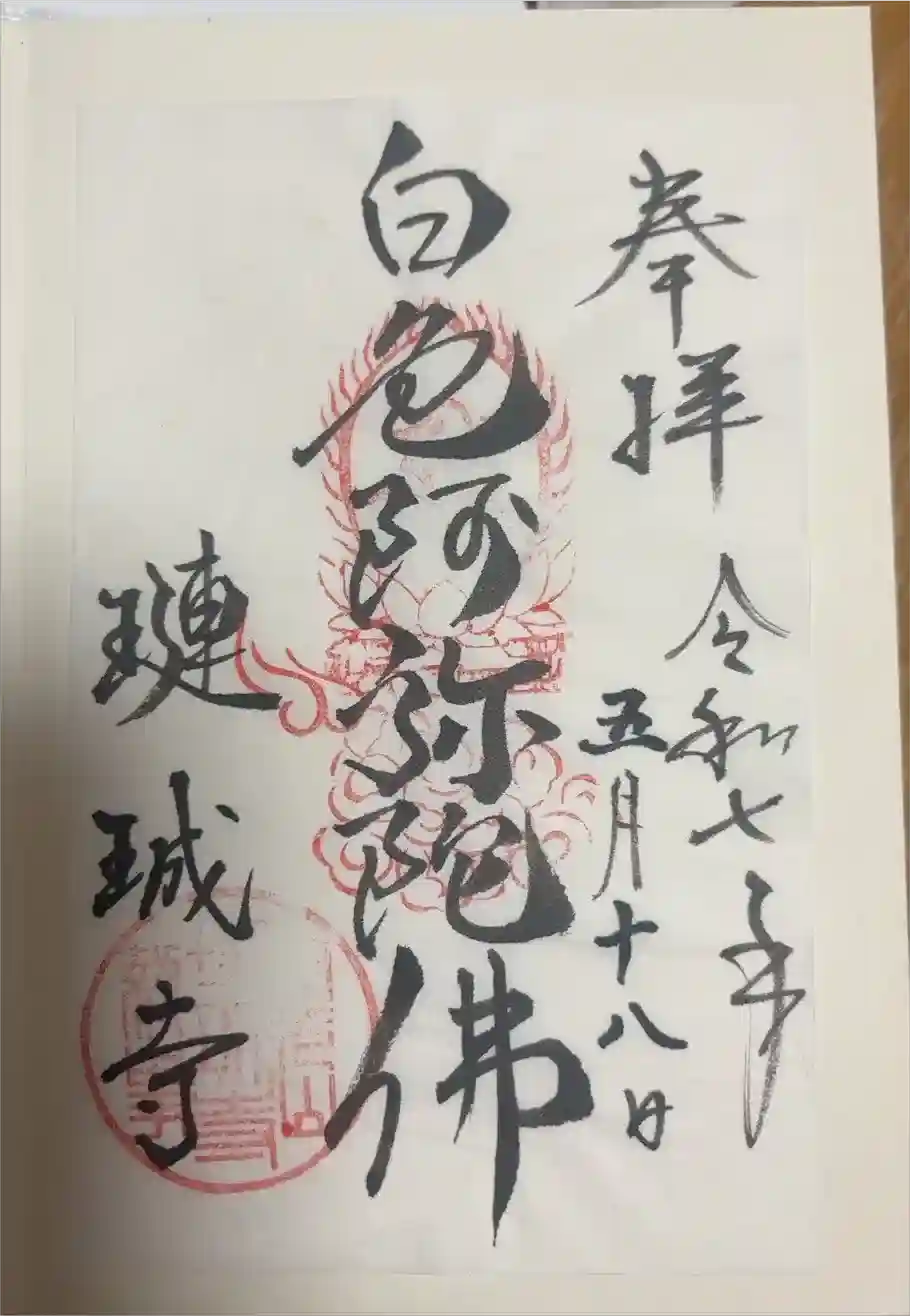 奉拝
令和七年
五月十八日
白色阿弥陀佛
璉珹寺